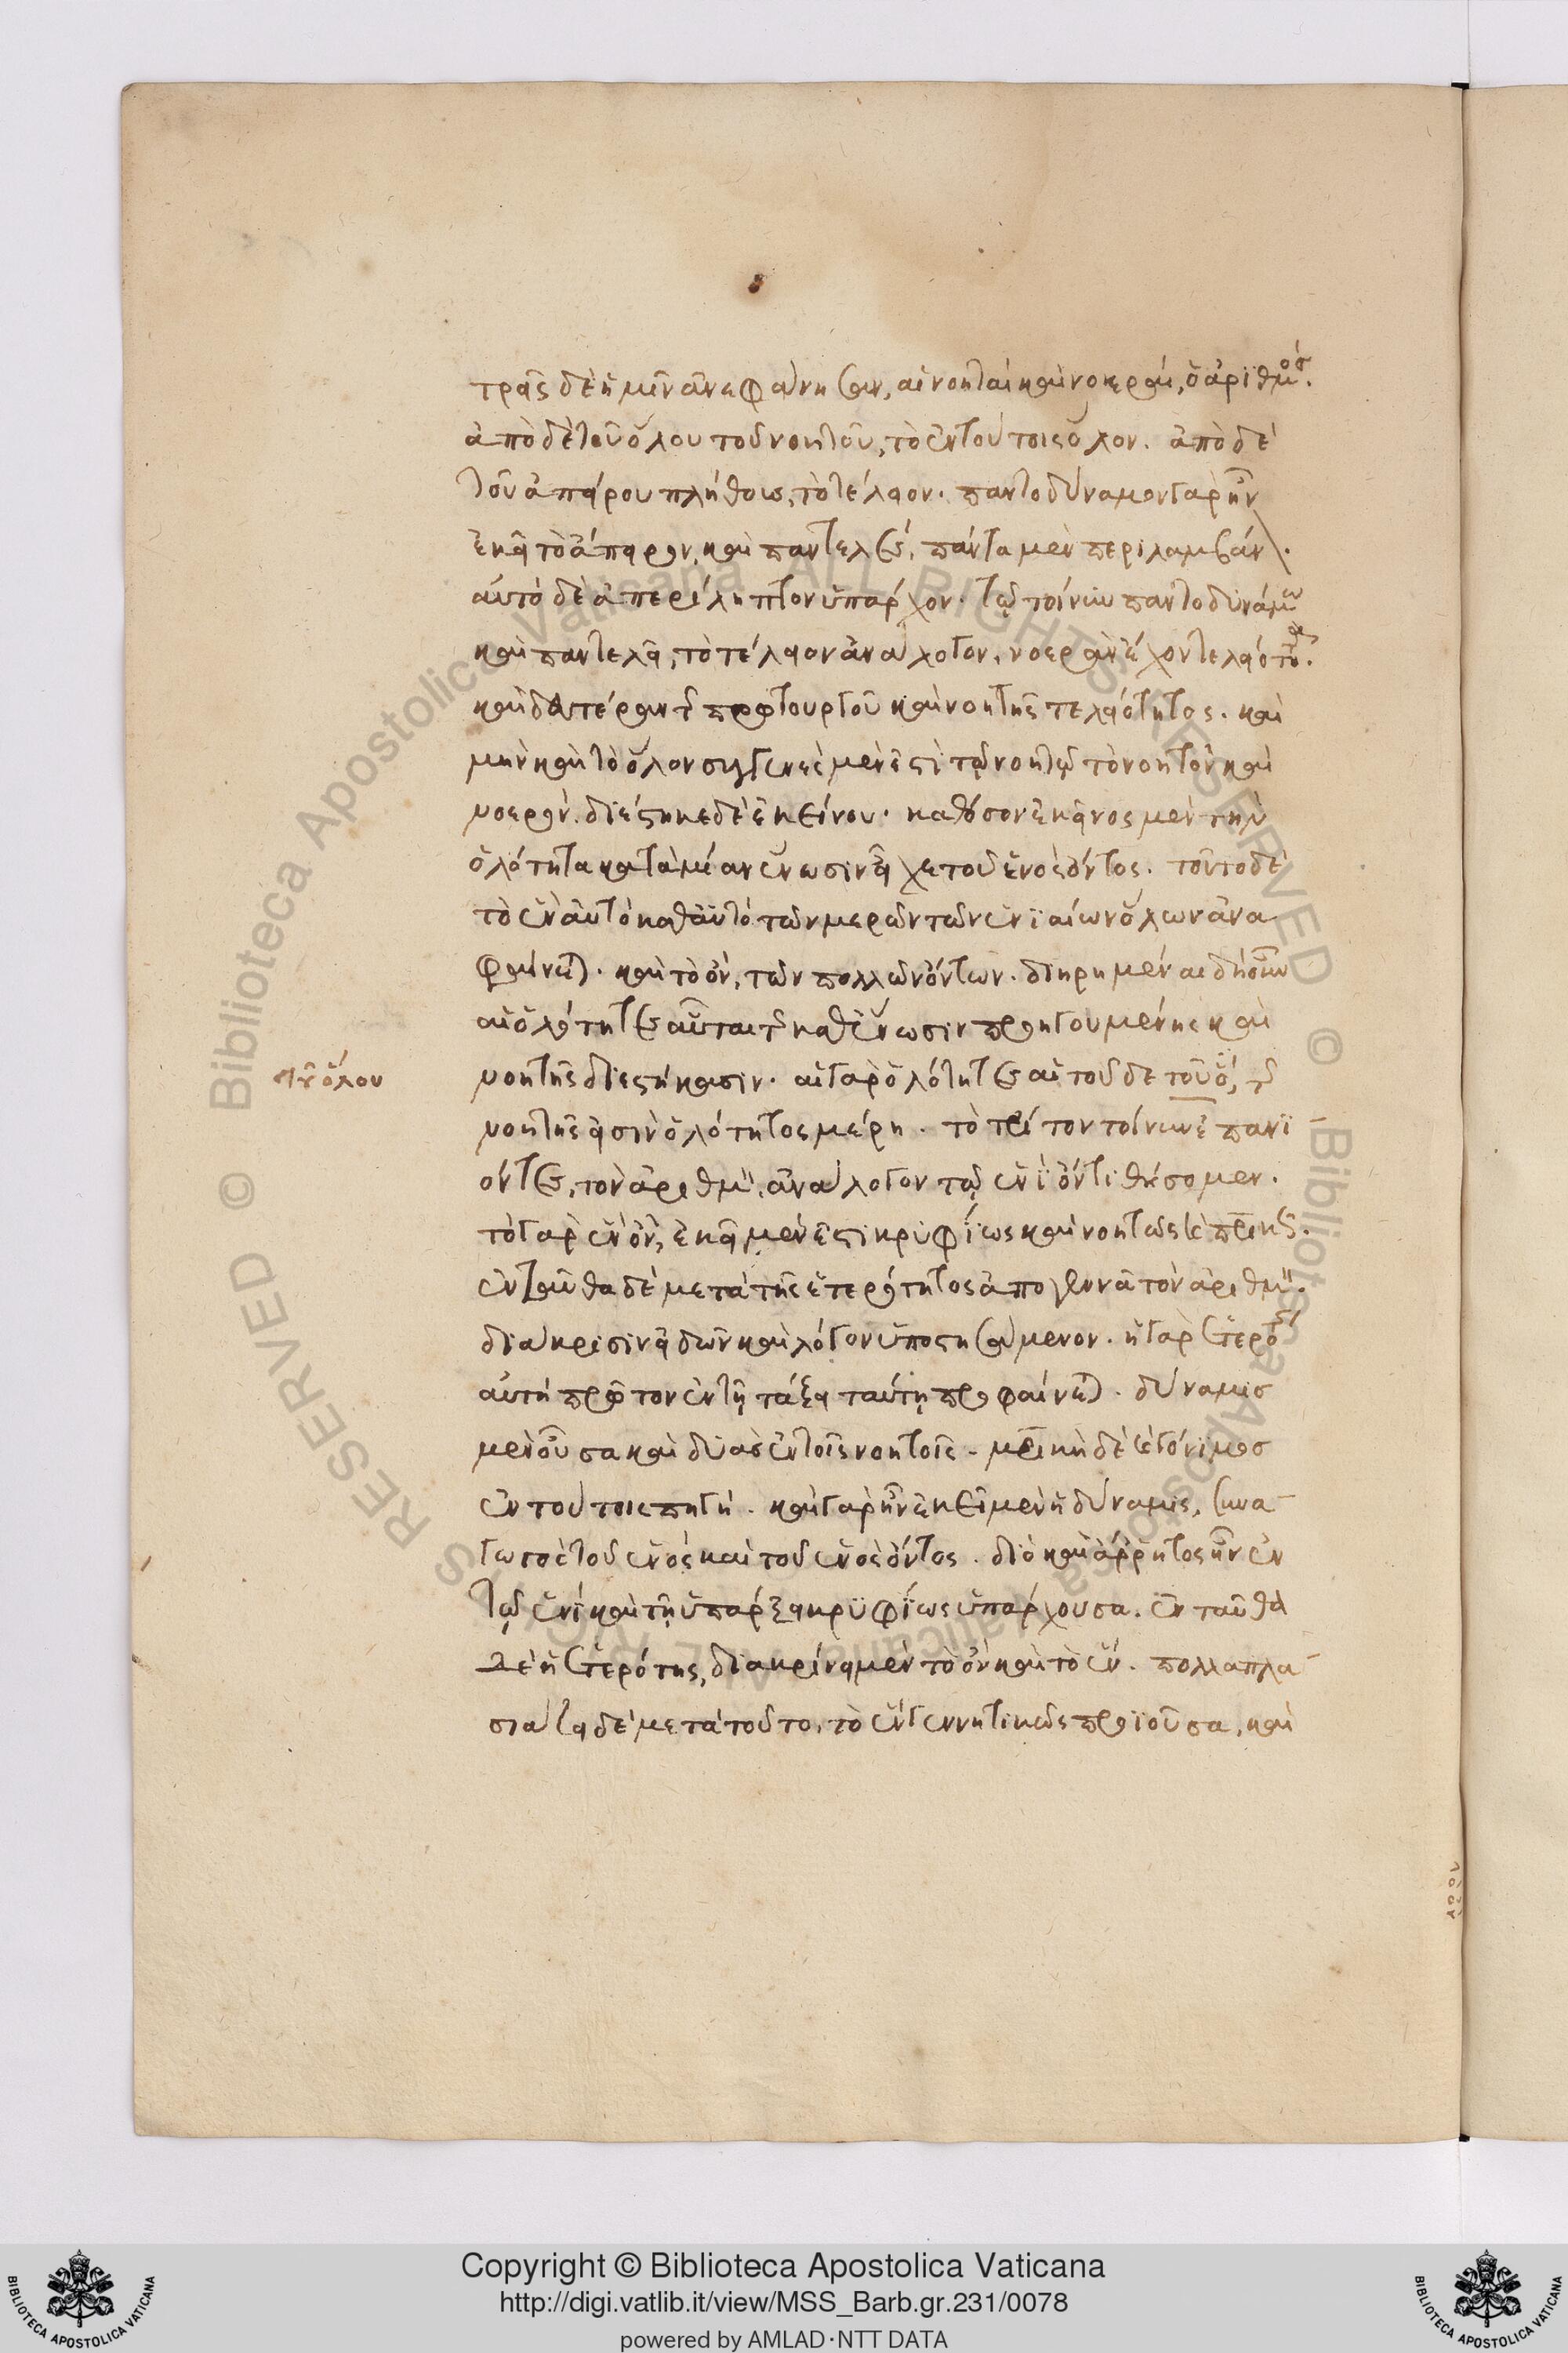 τρεῖς δὲ ἡμῖν ἀνεφάνησαν, αἱ νοηταὶ καὶ νοεραί, ὁ ἀριθμός.
ἀπὸ δὲ τοῦ ὅλου τοῦ νοητοῦ, τὸ ἐν τούτοις ὅλον. ἀπὸ δὲ
τοῦ ἀπείρου πλήθους, τὸ τέλειον. παντοδύναμον γὰρ ἦν
ἐκεῖ τὸ ἄπειρον, καὶ παντελές, πάντα μὲν περιλαμβάν.
αὐτὸ δὲ ἀπερίληπτον ὑπάρχον. τῷ τοίνυν παντοδυνάμῳ
καὶ παντελεῖ, τὸ τέλειον ἀνάλογον, νοερὰν ἔχον τελειότητα.
καὶ δευτέραν τῆς πρωτουργοῦ καὶ νοητῆς τελειότητος. καὶ
μὴν καὶ τὸ ὅλον συγγενὲς μέν ἐστι τῷ νοητῷ τὸ νοητὸν καὶ
νοερόν. διέστηκε δὲ ἐκείνου. καθόσον ἐκεῖνος μὲν τὴν
ὁλότητα κατὰ μίαν ἕνωσιν εἶχε τοῦ ἑνὸς ὄντος. τοῦτο δὲ
τὸ ἓν αὐτὸ καθ' αὑτὸ τῶν μερῶν τῶν ἑνιαίων ὅλων ἀνα
φαίνεται. καὶ τὸ ὄν, τῶν πολλῶν ὄντων. διῃρημέναι δὴ οὖν
αἱ ὁλότητες αὗται τῆς καθ' ἕνωσιν προηγουμένης καὶ
νοητῆς διεστήκασιν. αἱ γὰρ ὁλότητες αἱ τοῦδε τοῦ ὅ, τῆς
νοητῆς εἰσιν ὁλότητος μέρη. τὸ τρίτον τοίνυν ἐπανι
όντες, τὸν ἀριθμὸν, ἀνάλογον τῷ ἑνὶ ὄντι θήσομεν.
τὸ γὰρ ἓν ὄν, ἐκεῖ μέν ἐστι κρυφίως καὶ νοητῶς καὶ πατρικῶς.
ἐνταῦθα δὲ μετὰ τῆς ἑτερότητος ἀπογεννᾷ τὸν ἀριθμὸν.
διάκρισιν εἰδῶν καὶ λόγον ὑποστησάμενον. ἡ γὰρ ἑτερότης
αὐτὴ πρῶτον ἐν τῇ τάξει ταύτῃ προφαίνεται. δύναμις
μὲν οὖσα καὶ δυὰς ἐν τοῖς νοητοῖς. μητρικὴ δὲ καὶ γόνιμος
ἐν τούτοις πηγή. καὶ γὰρ ἦν ἐκεῖ μὲν ἡ δύναμις, συνα
γωγὸς τοῦ ἑνὸς καὶ τοῦ ἑνὸς ὄντος. διὸ καὶ ἄρρητος ἦν ἐν
τῷ ἑνὶ καὶ τῇ ὑπάρξει κρυφίως ὑπάρχουσα. ἐνταῦθα
δὲ ἡ ἑτερότης, διακρίνει μὲν τὸ ὂν καὶ τὸ ἕν. πολλαπλα
σιάζει δὲ μετὰ τοῦτο, τὸ ἓν γεννητικῶς προϊοῦσα, καὶ
τοῦ ὅλου
Copyright © Biblioteca Apostolica Vaticana
http://digi.vatlib.it/view/MSS_Barb.gr.231/0078
powered by AMLAD·NTT DATA